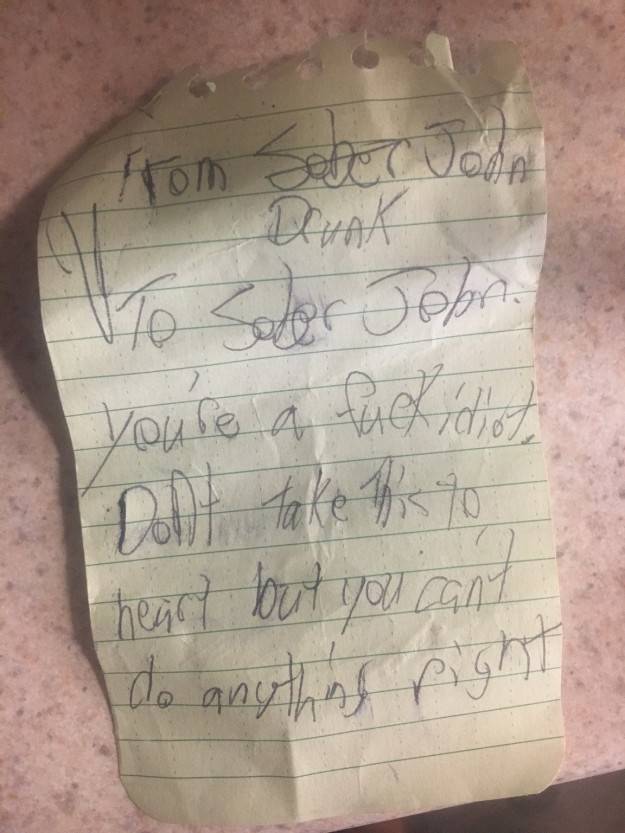 From Sober John
Drunk
To Sober John.
you're a fuck idiot.
Don't take this to
heart but you can't
do anything right